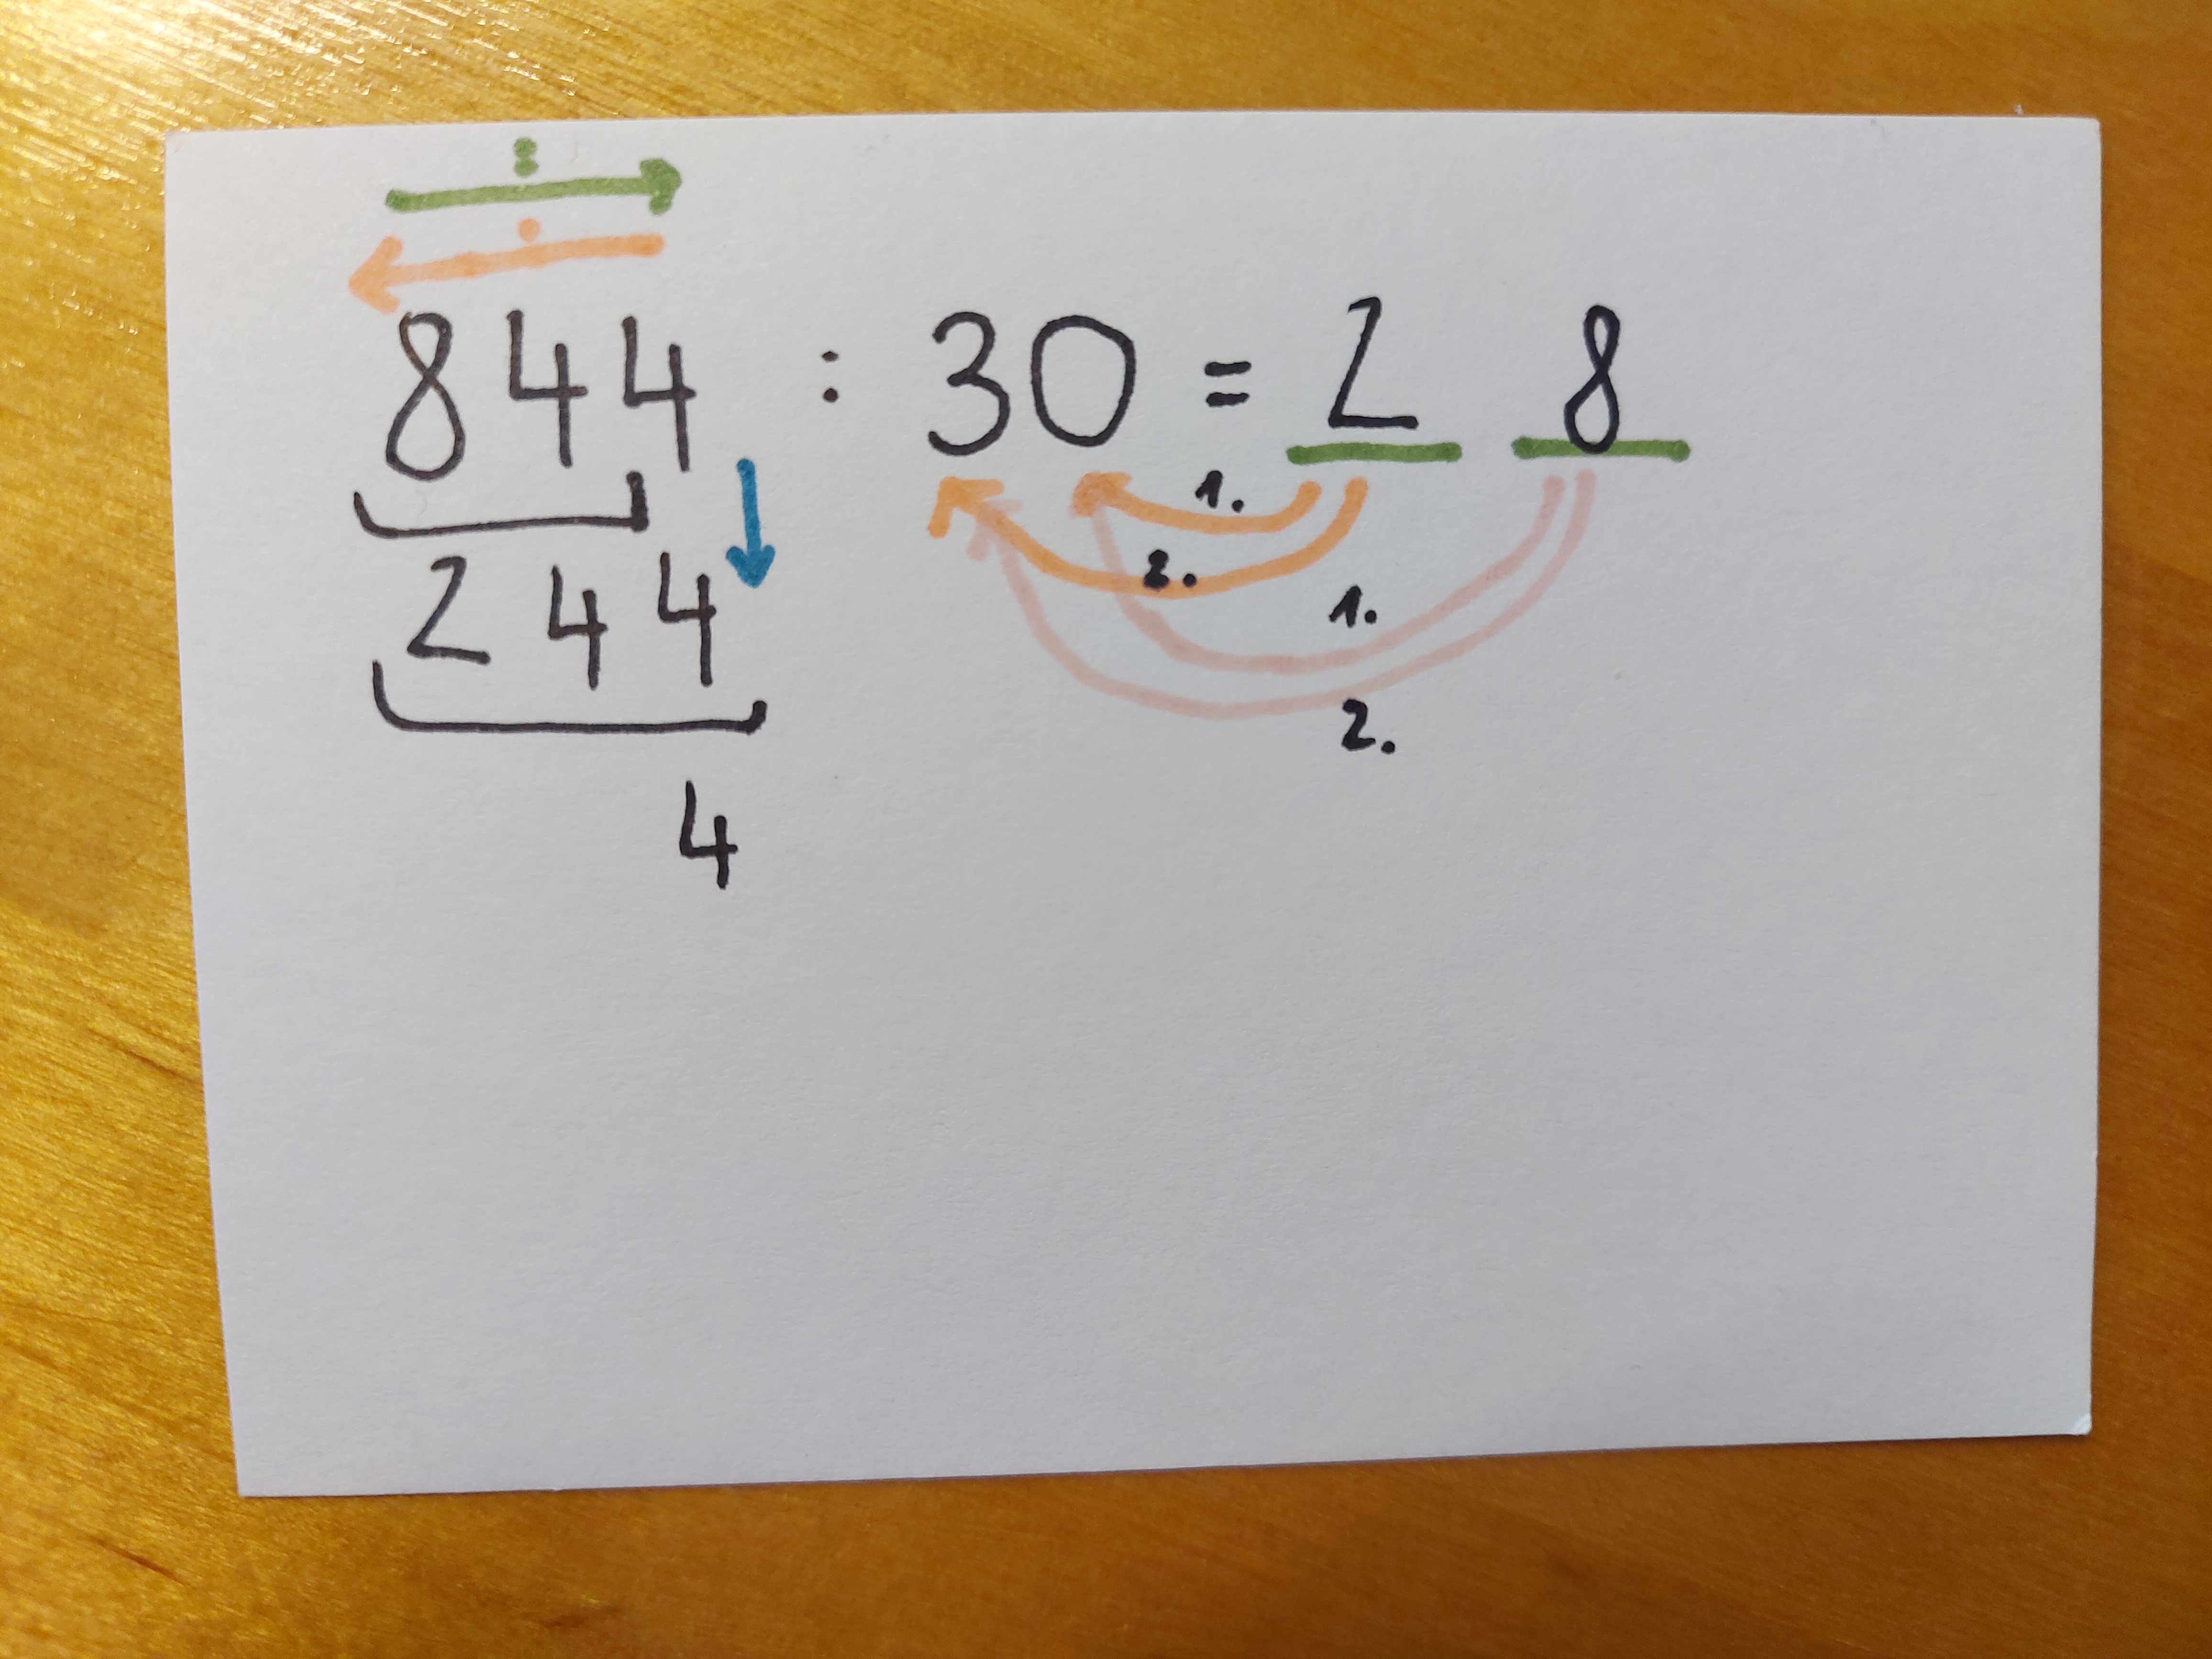 :
·
844 : 30 = 2 8
1.
244
2.
1.
2.
4